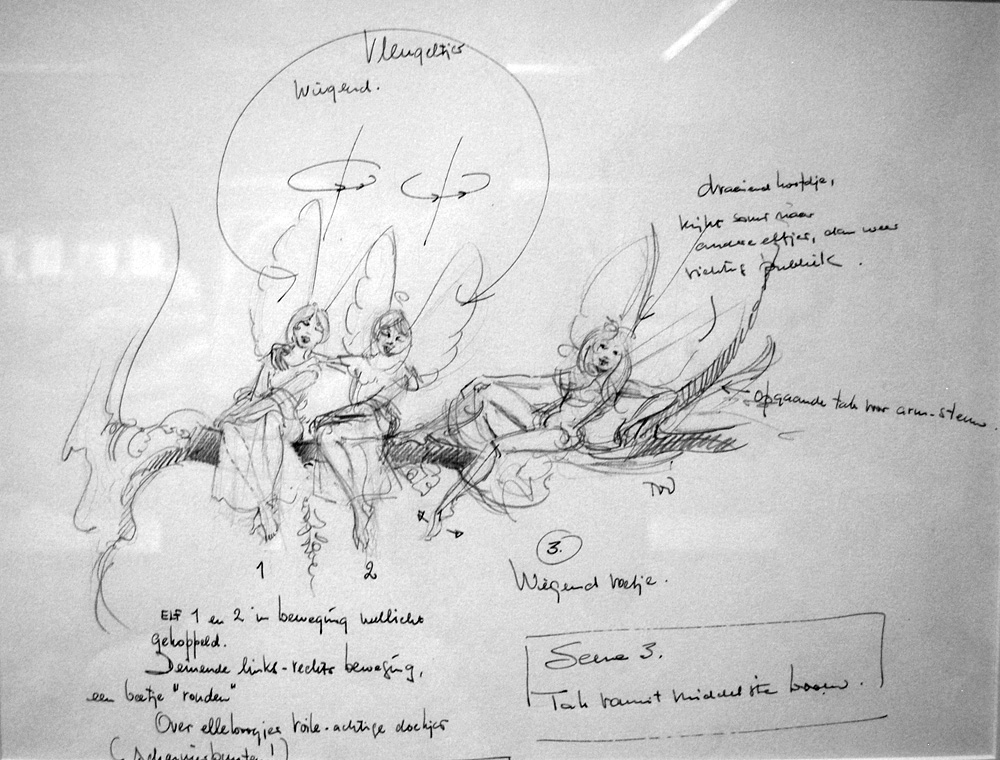 Vleugeltjes
Wiegend.
draaiend hoofdje,
kijkt soms naar
andere elfjes, dan weer
richting publiek.
Opgaande tak voor arm-steun.
1
2
3.
Wiegend voetje.
ELF 1 en 2 in beweging wellicht
gekoppeld.
Deinende links-rechts beweging,
een beetje "ronden"
Over elleboogjes voile-achtige doekjes
(scharnierpunten!)
Scene 3.
Tak vanuit middelste boom.